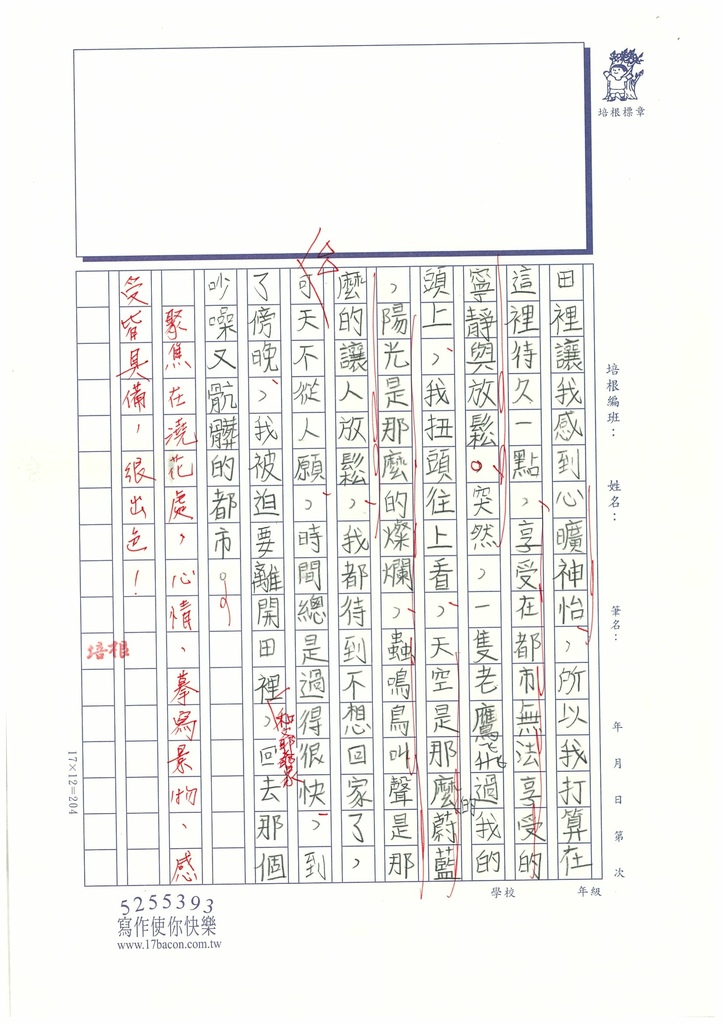 培根標章
培根編班：　姓名：　筆名：　年　月　日　第　次
學校　年級
田裡讓我感到心曠神怡，所以我打算在
這裡待久一點，享受在都市無法享受的
寧靜與放鬆。突然，一隻老鷹飛過我的
頭上，我扭頭往上看，天空是那麼的蔚藍
，陽光是那麼的燦爛，蟲鳴鳥叫聲是那
麼的讓人放鬆，我都待到不想回家了，
可天不從人願，時間總是過得很快，到
了傍晚，我被迫要離開田裡，回去那個
吵噪又骯髒的都市。
聚焦在澆花處，心情、摹寫景物、感
受皆具備，很出色！
培根
17×12=204
5255393
寫作使你快樂
www.17bacon.com.tw